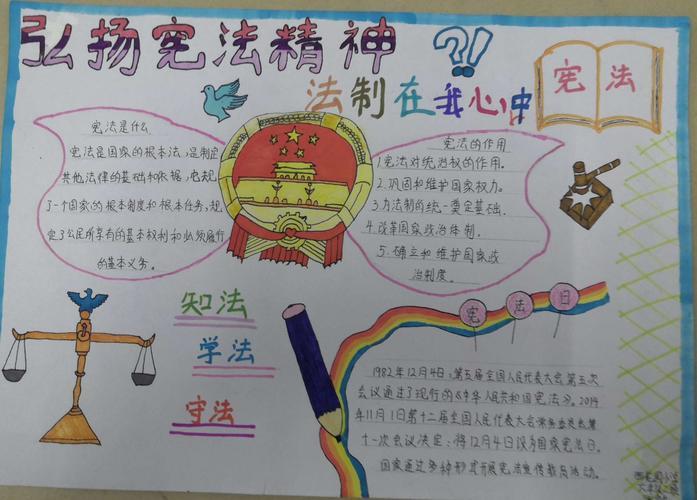 弘扬宪法精神
?!
法制在我心中
宪法
宪法是什么
宪法是国家的根本法,是制定
其他法律的基础和依据,它规
了一个国家的根本制度和根本任务,规
定了公民所享有的基本权利和必须履行
的基本义务。
宪法的作用
1.宪法对统治权的作用。
2.巩固和维护国家权力。
3.为法制的统一奠定基础。
4.改革国家政治体制。
5.确立和维护国家政
治制度。
知法
学法
守法
宪法日
1982年12月4日,第五届全国人民代表大会第五次
会议通过了现行的《中华人民共和国宪法》。2014
年11月1日第十二届全国人民代表大会常务委员会第
十一次会议决定:将12月4日设为国家宪法日。
国家通过多种形式开展宪法宣传教育活动。